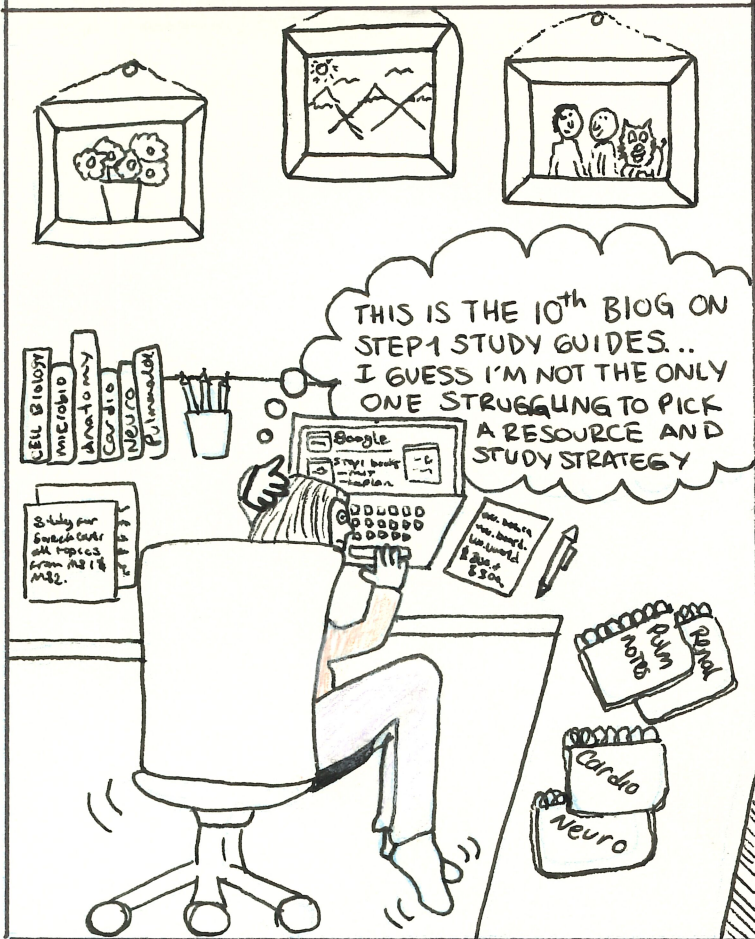 THIS IS THE 10th BLOG ON
STEP1 STUDY GUIDES...
I GUESS I'M NOT THE ONLY
ONE STRUGGLING TO PICK
A RESOURCE AND
STUDY STRATEGY
CELL BIOLOGY
Microbio
Anatomy
Cardio
Neuro
Google
Step1 books
Kaplan
Study for
all topics
from MS1 &
MS2.
Pulm
Notes
Renal
Cardio
Neuro